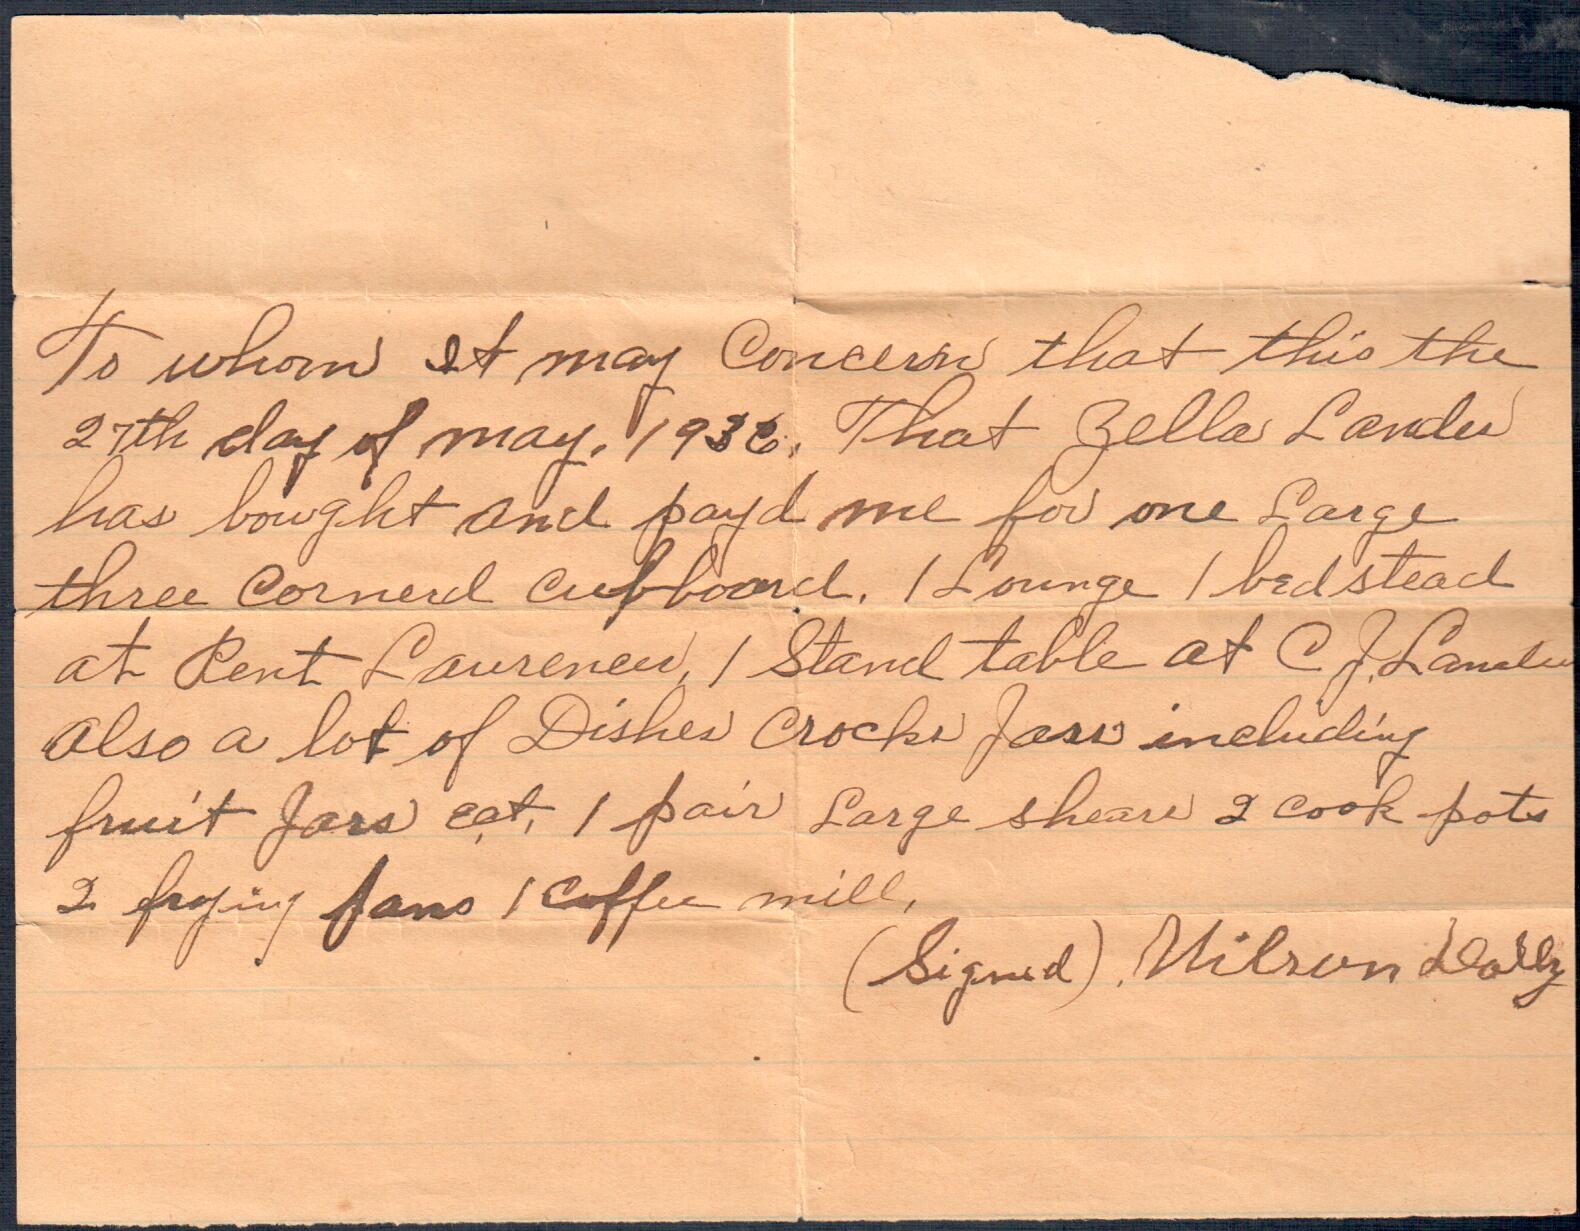 To whom It may Concern that this the
27th day of may, 1936. That Zella Landes
has bought and payd me for one Large
three Cornerd Cubboard. 1 Lounge 1 bedstead
at Kent Laurences, 1 Stand table at C J. Landes
also a lot of Dishes Crocks Jars including
fruit Jars ect, 1 pair Large shears 2 cook pots
2 frying pans 1 Coffee mill,
(Signed). Wilson Dolly